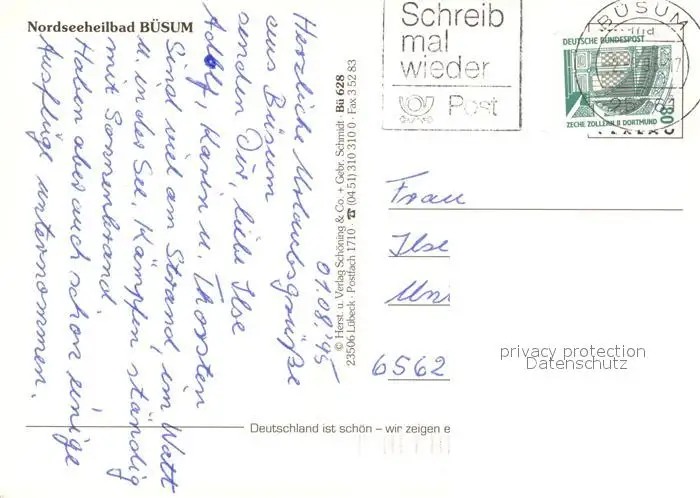 Nordseeheilbad BÜSUM
01.08.'95
Herzliche Urlaubsgrüße
aus Büsum
senden Dir, liebe Ilse
Adolf, Karin u. Thorsten
Sind viel am Strand, im Watt
u. in der See. Kämpfen ständig
mit Sonnenbrand
Haben aber auch schon einige
Ausflüge unternommen.
© Herst. u. Verlag Schöning & Co. + Gebr. Schmidt · Bü 628
23506 Lübeck · Postfach 1710 · ☎ (04 51) 310 310 0 · Fax 3 52 83
Schreib
mal
wieder
Post
BÜSUM
DEUTSCHE BUNDESPOST
80
ZECHE ZOLLERN II DORTMUND
Frau
Ilse
6562
privacy protection
Datenschutz
Deutschland ist schön – wir zeigen e